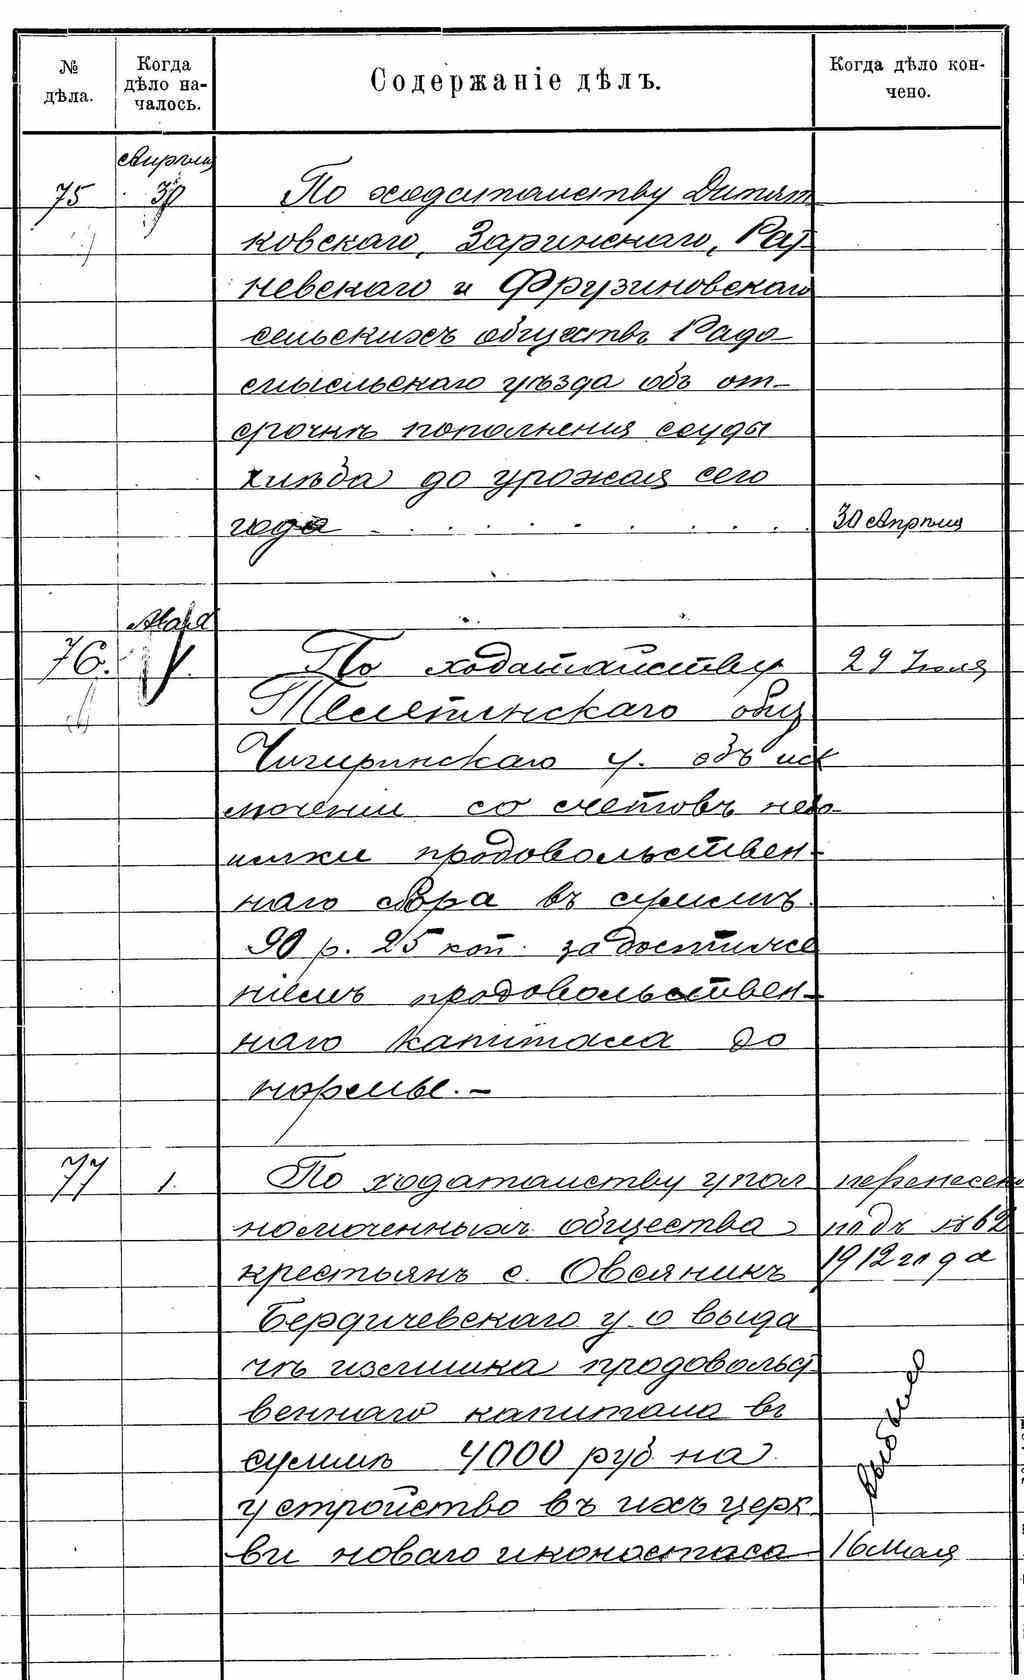 № дѣла.
Когда дѣло на-
чалось.
Содержаніе дѣлъ.
Когда дѣло кон-
чено.
Апрѣля
75 30 По ходатайству Дитят
ковскаго, Заринскаго, Рат
невскаго и Фрузиновскаго
сельскихъ обществъ Радо-
мысльскаго уѣзда объ от-
срочкѣ пополненія ссуды
хлѣба до урожая сего
года 30 Апрѣля
Мая
76. 1. По ходатайству 29 Іюля
Телепинскаго общ
Чигиринскаго у. объ иск
люченіи со счетовъ недо-
имки продовольствен-
наго сбора въ суммѣ
90 р. 25 коп. за достиже
ніемъ продовольствен-
наго капитала до
нормы.-
77 1. По ходатайству упол перенесено
номоченныхъ общества подъ №
крестьянъ с. Овсяникъ 1912 года
Бердичевскаго у. о выда
чѣ излишка продовольст
веннаго капитала въ
суммѣ 4000 руб на
устройство въ ихъ церк
ви новаго иконостаса 16 мая
выбыло